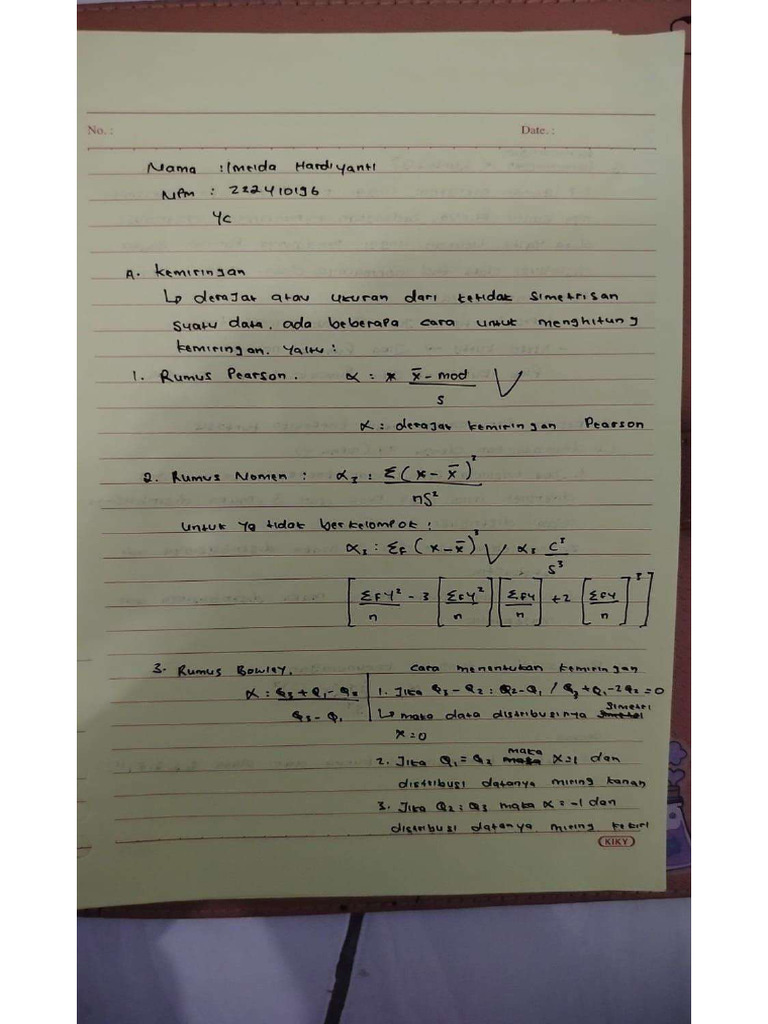 No. :
Date. :
Nama : Imelda Hardiyanti
NPM : 222410196
4c
A. Kemiringan
↳ derajat atau ukuran dari ketidak simetrisan
suatu data. ada beberapa cara untuk menghitung
kemiringan. Yaitu :
1. Rumus Pearson. α : * x̄ - mod / s
α : derajat kemiringan Pearson
2. Rumus Momen : α₃ : Σ(x - x̄)³ / nS²
Untuk yg tidak berkelompok :
α₃ : Σf (x - x̄)³ α₃ c³ / s³
[ΣfY² / n - 3 [ΣfY² / n] [ΣfY / n] + 2 [ΣfY / n]³]
3. Rumus Bowley.
α : Q₃ + Q₁ - Q₂ / Q₃ - Q₁
Cara menentukan kemiringan
1. Jika Q₃ - Q₂ : Q₂ - Q₁ / Q₃ + Q₁ - 2Q₂ = 0
↳ maka data distribusinya simetri
x = 0
2. Jika Q₁ = Q₂ maka x = 1 dan
distribusi datanya miring kanan
3. Jika Q₂ : Q₃ maka α = -1 dan
distribusi datanya miring kekiri
KIKY